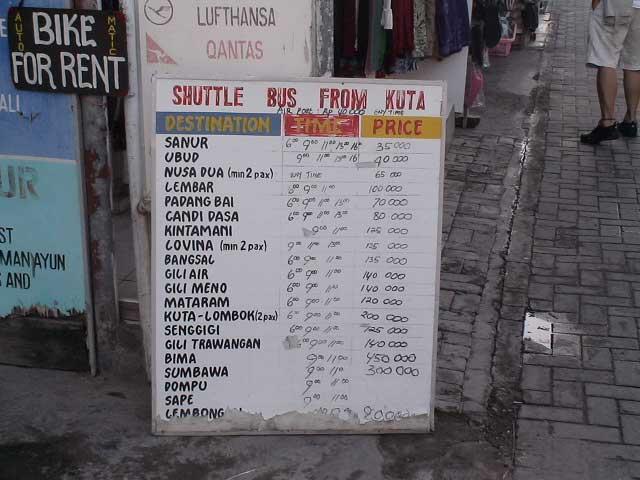 AUTO MATIC
BIKE
FOR RENT
LUFTHANSA
QANTAS
ALI
UR
ST
MAN AYUN
S AND
SHUTTLE BUS FROM KUTA
AIR PORT : Rp 40 000 ANY TIME
DESTINATION TIME PRICE
SANUR 6⁰⁰ 9⁰⁰ 11⁰⁰ 13⁰⁰ 16 35 000
UBUD 9⁰⁰ 11⁰⁰ 13⁰⁰ 16 40 000
NUSA DUA (min 2 pax) ANY TIME 65 000
LEMBAR 6⁰⁰ 9⁰⁰ 11⁰⁰ 100 000
PADANG BAI 6⁰⁰ 9⁰⁰ 11⁰⁰ 13⁰⁰ 70 000
CANDI DASA 6⁰⁰ 9⁰⁰ 11⁰⁰ 13⁰⁰ 80 000
KINTAMANI 9⁰⁰ 11⁰⁰ 125 000
LOVINA (min 2 pax) 9⁰⁰ 11⁰⁰ 13⁰⁰ 125 000
BANGSAL 6⁰⁰ 9⁰⁰ 11⁰⁰ 135 000
GILI AIR 6⁰⁰ 9⁰⁰ 11⁰⁰ 140 000
GILI MENO 6⁰⁰ 9⁰⁰ 11⁰⁰ 140 000
MATARAM 6⁰⁰ 9⁰⁰ 11⁰⁰ 120 000
KUTA-LOMBOK (2 pax) 6⁰⁰ 9⁰⁰ 11⁰⁰ 200 000
SENGGIGI 6⁰⁰ 9⁰⁰ 11⁰⁰ 125 000
GILI TRAWANGAN 9⁰⁰ 11⁰⁰ 140 000
BIMA 9⁰⁰ 11⁰⁰ 450 000
SUMBAWA 9⁰⁰ 11⁰⁰ 300 000
DOMPU 9⁰⁰ 11⁰⁰
SAPE 9⁰⁰ 11⁰⁰
LEMBONGAN